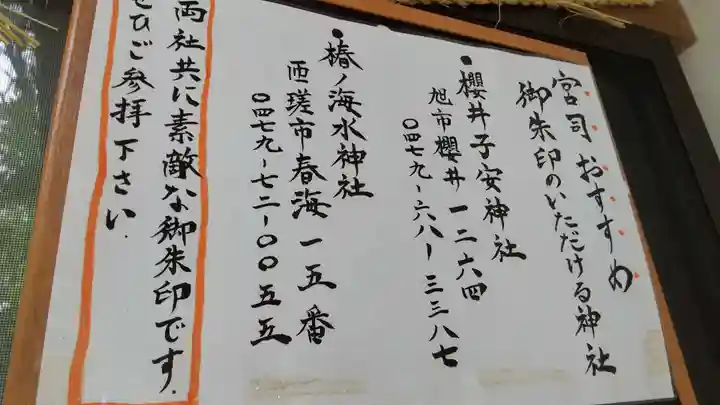 宮司おすすめ
御朱印のいただける神社
•櫻井子安神社
旭市櫻井一二六四
〇四七九-六八-三三八七
•椿ノ海水神社
匝瑳市春海一五番
〇四七九-七二-〇〇五五
両社共に素敵な御朱印です.
ぜひご参拝下さい.